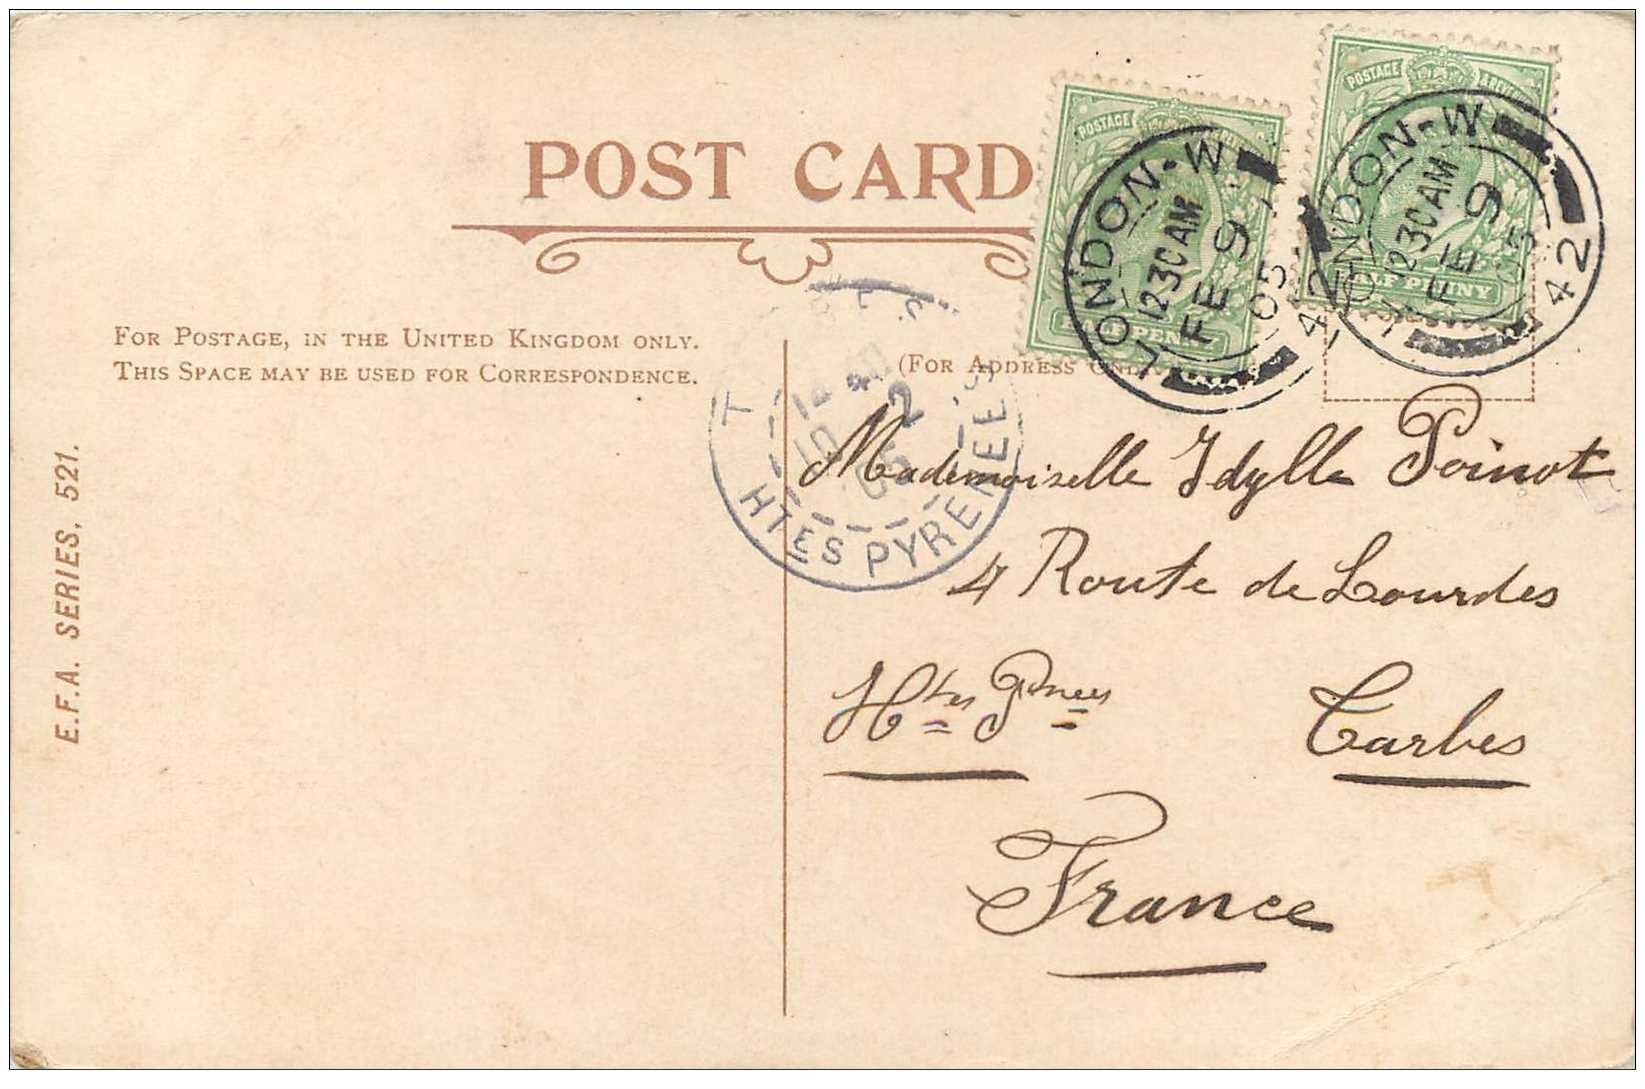 POST CARD
POSTAGE
HALF PENNY
LONDON-W
12 30 AM
FE 9
05
42
POSTAGE & REVENUE
HALF PENNY
LONDON-W
12 30 AM
FE 9
05
42
FOR POSTAGE, IN THE UNITED KINGDOM ONLY.
THIS SPACE MAY BE USED FOR CORRESPONDENCE.
(FOR ADDRESS ONLY)
HTES PYRENEES
E.F.A. SERIES, 521.
Mademoiselle Idylle Poinot
4 Route de Lourdes
Htes Pnees Tarbes
France